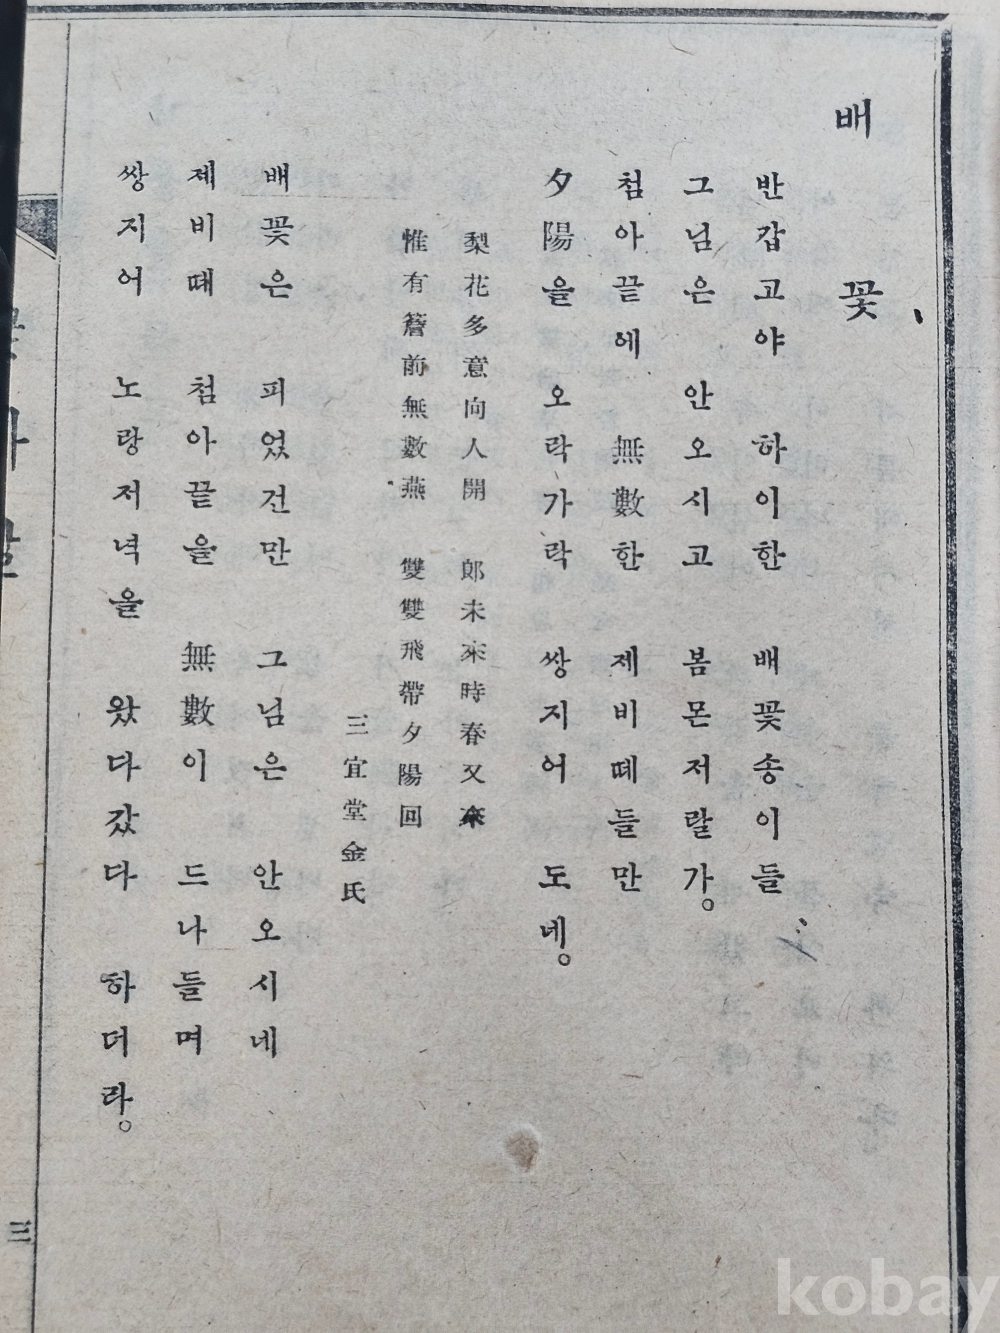 배꽃
반갑고야 하이한 배꽃송이들
그님은 안오시고 봄몬저랄가。
첨아끝에 無數한 제비떼들만
夕陽을 오락가락 쌍지어 도네。
梨花多意向人開 郞未來時春又來
惟有簷前無數燕 雙雙飛帶夕陽回
三宜堂金氏
배꽃은 피었건만 그님은 안오시네
제비떼 첨아끝을 無數이 드나들며
쌍지어 노랑저녁을 왔다갔다 하더라。
三
kobay